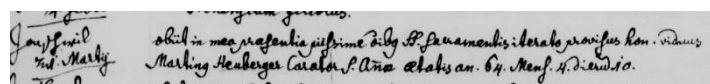 obiit in mea præsentia piissime oibq SS. Sacramentis iterato provisus hon. viduus
int. Martij Martinq Heuberger Curator S. Añæ ætatis an. 64. Mens. 4. dierū 10.